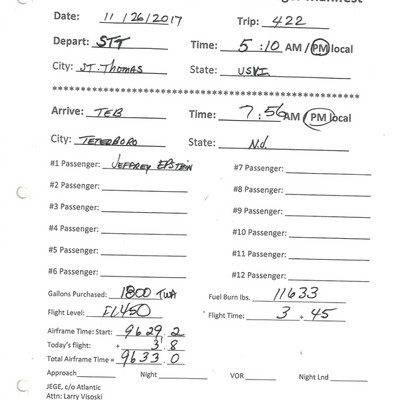 Manifest
Date: 11/26/2017 Trip: 422
Depart: STT Time: 5:10 AM / PM local
City: ST. THOMAS State: USVI
Arrive: TEB Time: 7:56 AM PM local
City: TETERBORO State: N.J.
#1 Passenger: JEFFREY EPSTEIN #7 Passenger:
#2 Passenger: #8 Passenger:
#3 Passenger: #9 Passenger:
#4 Passenger: #10 Passenger:
#5 Passenger: #11 Passenger:
#6 Passenger: #12 Passenger:
Gallons Purchased: 1800 TWA Fuel Burn lbs. 11633
Flight Level: FL450 Flight Time: 3 + 45
Airframe Time: Start: 9629.2
Today's flight: + 3.8
Total Airframe Time = 9633.0
Approach Night VOR Night Lnd
JEGE, c/o Atlantic
Attn: Larry Visoski